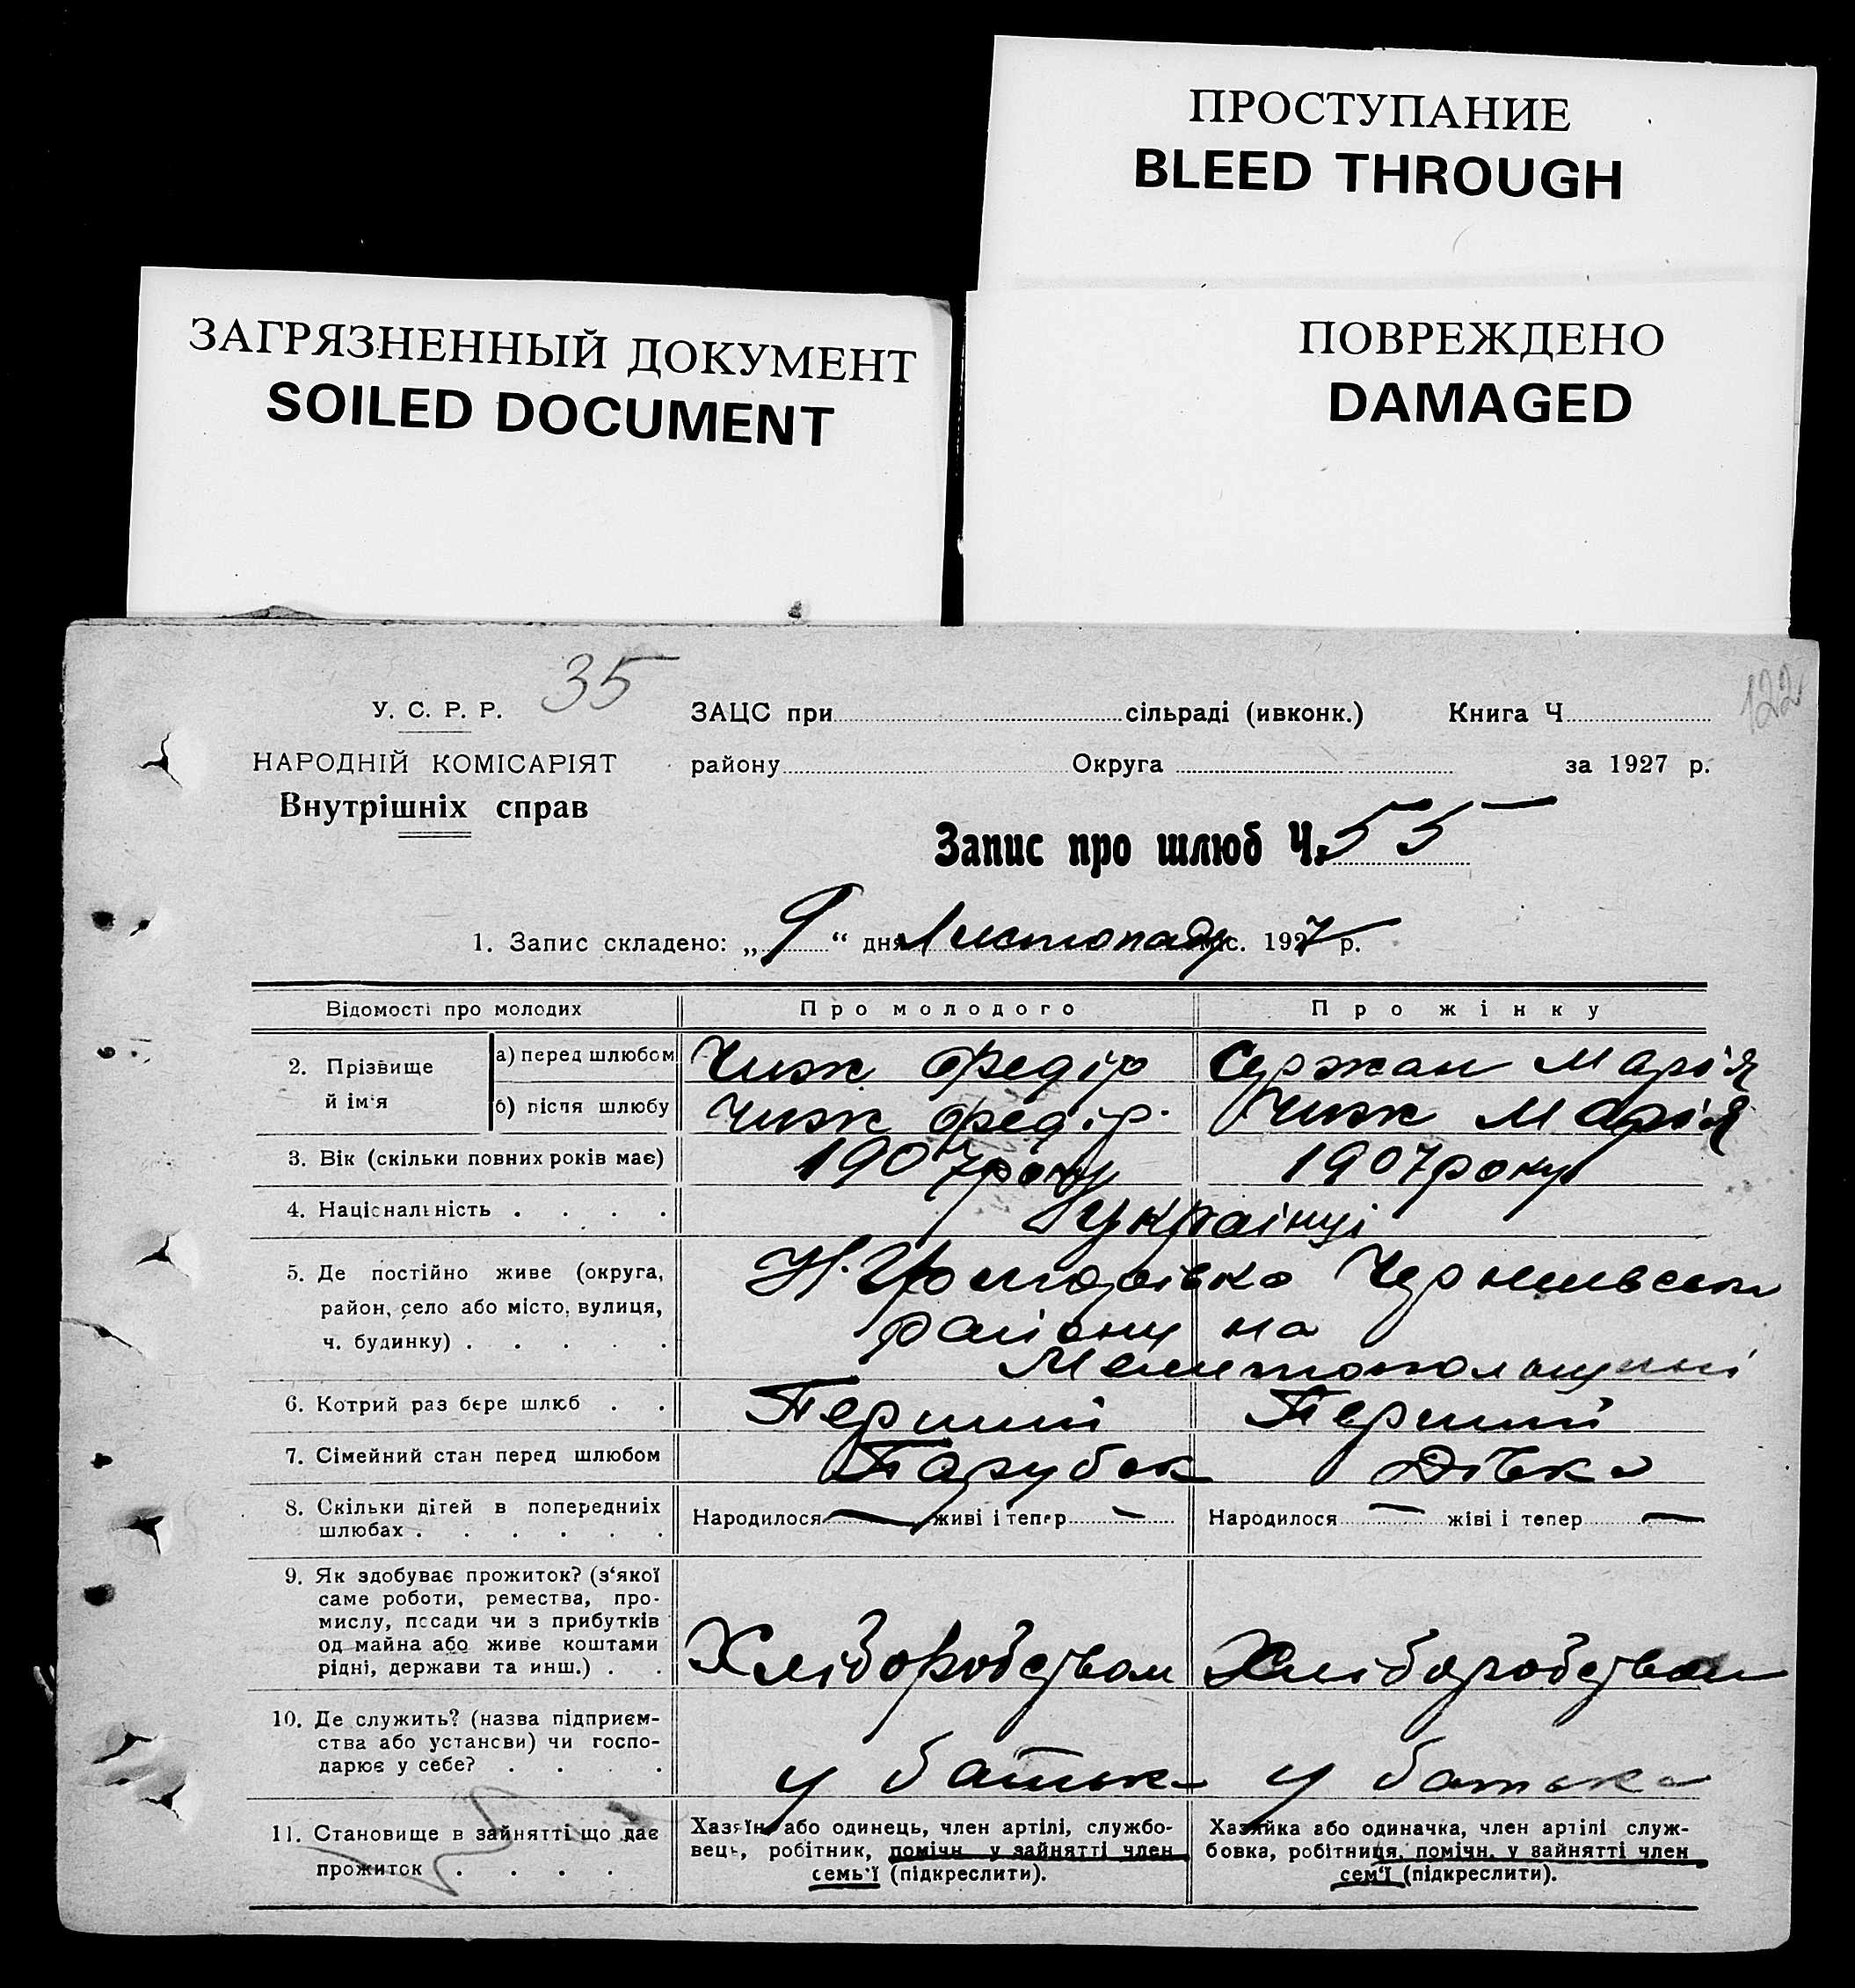 ПРОСТУПАНИЕ
BLEED THROUGH
ЗАГРЯЗНЕННЫЙ ДОКУМЕНТ
SOILED DOCUMENT
ПОВРЕЖДЕНО
DAMAGED
35
122
У. С. Р. Р.
НАРОДНІЙ КОМІСАРІЯТ
Внутрішніх справ
ЗАЦС при сільраді (ивконк.) Книга Ч
району Округа за 1927 р.
Запис про шлюб Ч. 55
1. Запис складено: „9“ дня Листопаду с. 1927 р.
Відомості про молодих Про молодого Про жінку
2. Прізвище й ім'я
а) перед шлюбом Чиж Федір Суржан Марія
б) після шлюбу Чиж Федір Чиж Марія
3. Вік (скільки повних років має) 1907 року 1907 року
4. Національність . . . . Українці
5. Де постійно живе (округа,
район, село або місто, вулиця,
ч. будинку) . . . . .
району на
Мелітопольщині
6. Котрий раз бере шлюб . . Перший Перший
7. Сімейний стан перед шлюбом Парубок Дівка
8. Скільки дітей в попередниіх
шлюбах . . . . . .
Народилося — живі і тепер — Народилося — жіві і тепер —
9. Як здобуває прожиток? (з‘якої
саме роботи, ремества, про-
мислу, посади чи з прибутків
од майна або живе коштами
рідні, держави та инш.) . .
Хліборобством Хліборобством
10. Де служить? (назва підприєм-
ства або установи) чи госпо-
дарює у себе? . . . .
у батька у батька
11. Становище в зайнятті що дає
прожиток . . . .
Хазяїн або одинець, член артілі, службо-
вець, робітник, помічн. у зайнятті член
семь'ї (підкреслити).
Хазяйка або одиначка, член артілі служ-
бовка, робітниця, помічн. у зайнятті член
сем'ї (підкреслити).